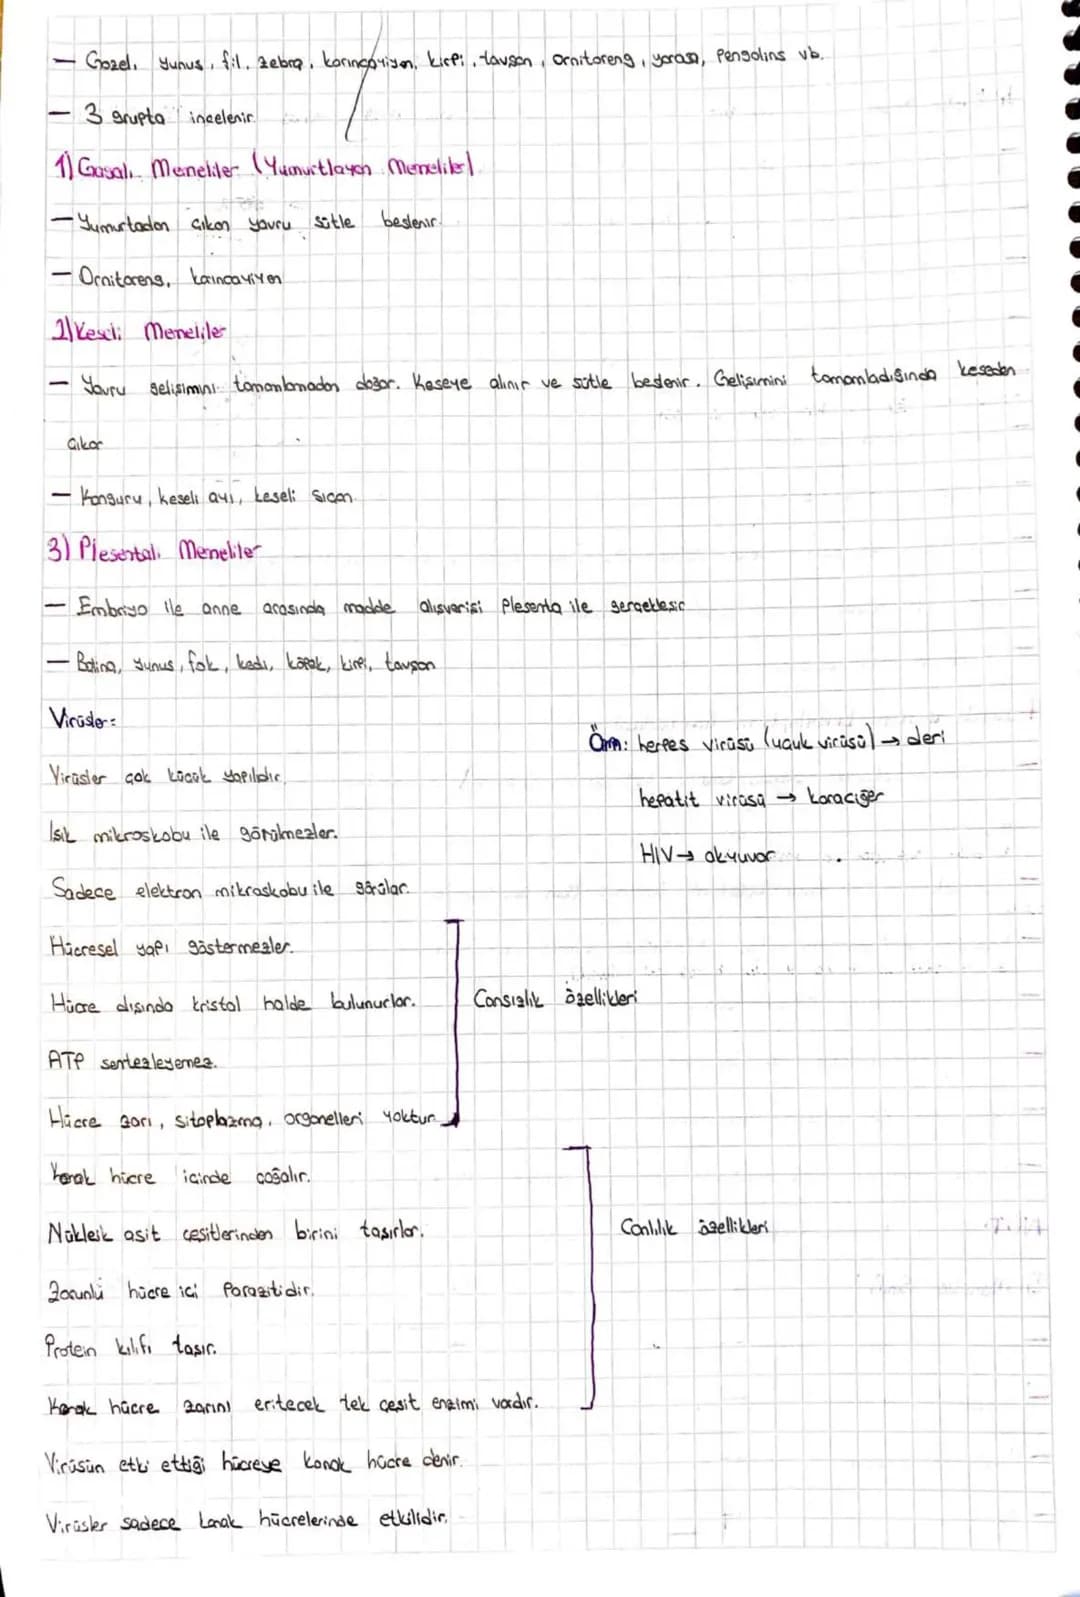 — Gazel, yunus, fil, zebra, karıncayiyen, kirpi, tavşan, ornitoreng, yarasa, Pengolins vb.
— 3 grupta incelenir.
1) Gagalı Memeliler (Yumurtlayan Memeliler)
— Yumurtadan çıkan yavru sütle beslenir.
— Ornitoreng, karıncayiyen
2) Keseli Memeliler
— Yavru gelişimini tamamlamadan doğar. Keseye alınır ve sütle beslenir. Gelişimini tamamladığında keseden
çıkar
— Kanguru, keseli ayı, keseli sıçan.
3) Plesentalı Memeliler
— Embriyo ile anne arasında madde alışverişi Plesenta ile gerçekleşir
— Balina, yunus, fok, kedi, köpek, kirpi, tavşan
Virüsler:
Örn: herpes virüsü (uçuk virüsü) → deri
Virüsler çok küçük yapılıdır.
hepatit virüsü → karaciğer
Işık mikroskobu ile görülmezler.
HIV → akyuvar
Sadece elektron mikroskobu ile görülür.
Hücresel yapı göstermezler.
Hücre dışında kristal halde bulunurlar.
Cansızlık özellikleri
ATP sentezleyemez.
Hücre zarı, sitoplazma, organelleri yoktur.
Konak hücre içinde çoğalır.
Nükleik asit çeşitlerinden birini taşırlar.
Canlılık özellikleri
Zorunlu hücre içi Parazitidir.
Protein kılıfı taşır.
Konak hücre zarını eritecek tek çeşit enzimi vardır.
Virüsün etki ettiği hücreye konak hücre denir.
Virüsler sadece konak hücrelerinde etkilidir.